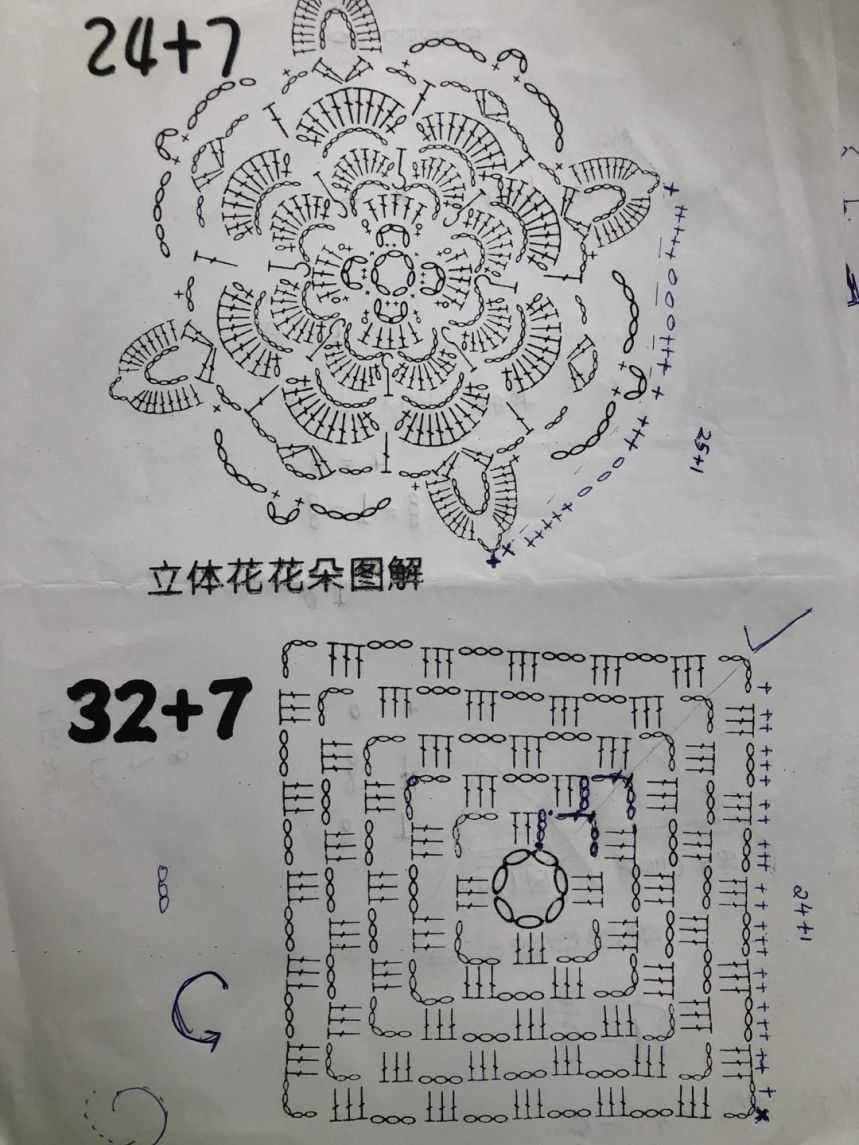 24+7
25+1
立体花花朵图解
32+7
24+1